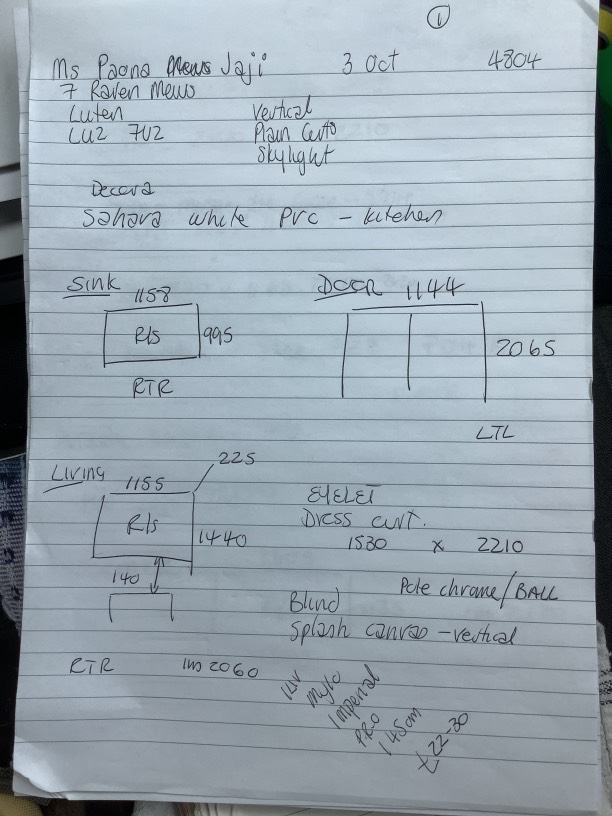 1
Ms Paona Mews Jaji 3 Oct 4804
7 Raven Mews
Luten Vertical
LU2 7U2 Plain Curto
Skylight
Decora
Sahara white PVC - kitchen
Sink 1158
R/s 995
RTR
DOOR 1144
2065
LTL
Living 1155 225
R/s 1440
140
EYELET
Dress curt.
1530 x 2210
Pole chrome/BALL
Blind
Splash canvao - vertical
RTR 2060
Imperial
145cm
£22-30